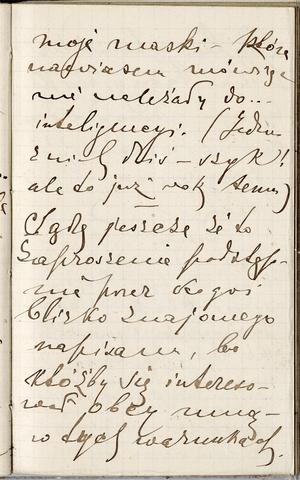 moje maski – które
nawiasem mówiąc
nie należały do...
inteligencyi. (Jedna
z nich dziś – szyk!
ale to już rok temu)
Sądzę jeszcze że to
zaproszenie podstęp-
nie przez kogoś
blizko znajomego
napisane, bo
któżby się intereso-
wał obcy mną –
w tych warunkach.